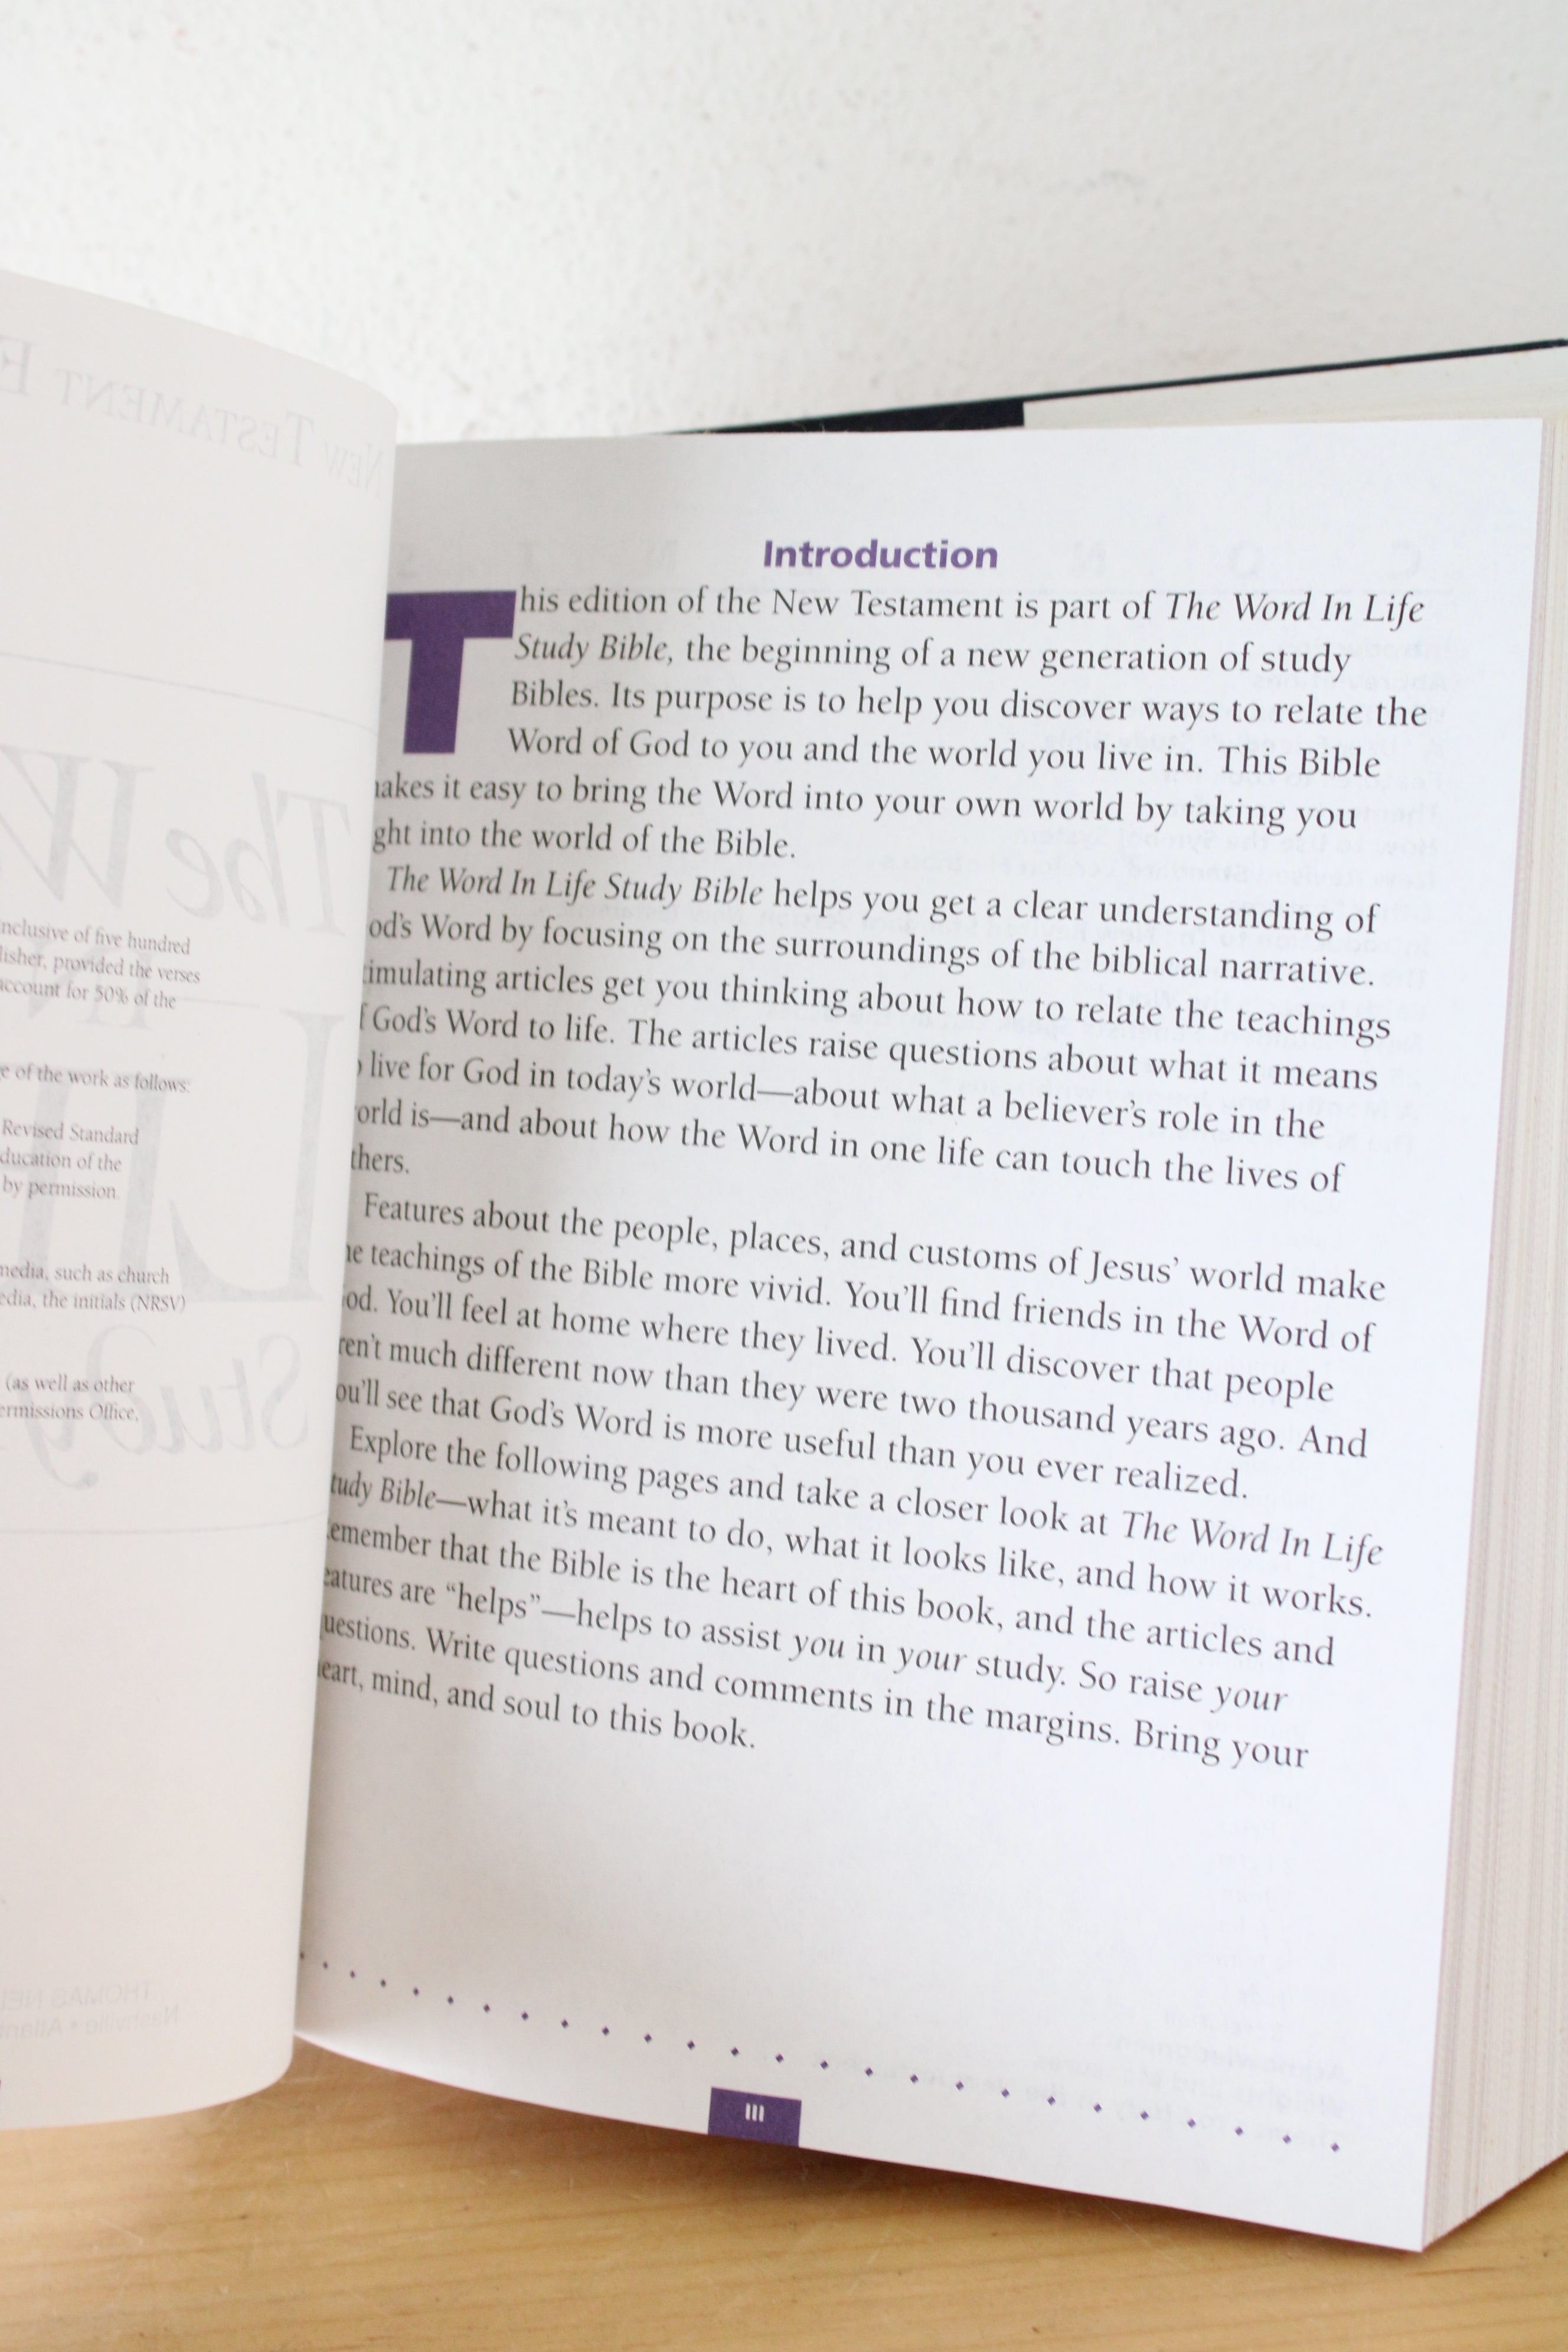 nclusive of five hundred
lisher, provided the verses
account for 50% of the
e of the work as follows:
Revised Standard
ducation of the
by permission.
media, such as church
edia, the initials (NRSV)
(as well as other
ermissions Office,
Introduction
This edition of the New Testament is part of The Word In Life
Study Bible, the beginning of a new generation of study
Bibles. Its purpose is to help you discover ways to relate the
Word of God to you and the world you live in. This Bible
akes it easy to bring the Word into your own world by taking you
ght into the world of the Bible.
The Word In Life Study Bible helps you get a clear understanding of
od's Word by focusing on the surroundings of the biblical narrative.
timulating articles get you thinking about how to relate the teachings
f God's Word to life. The articles raise questions about what it means
live for God in today's world—about what a believer's role in the
orld is—and about how the Word in one life can touch the lives of
thers.
Features about the people, places, and customs of Jesus' world make
he teachings of the Bible more vivid. You'll find friends in the Word of
od. You'll feel at home where they lived. You'll discover that people
ren't much different now than they were two thousand years ago. And
ou'll see that God's Word is more useful than you ever realized.
Explore the following pages and take a closer look at The Word In Life
tudy Bible—what it's meant to do, what it looks like, and how it works.
emember that the Bible is the heart of this book, and the articles and
eatures are “helps”—helps to assist you in your study. So raise your
uestions. Write questions and comments in the margins. Bring your
eart, mind, and soul to this book.
III